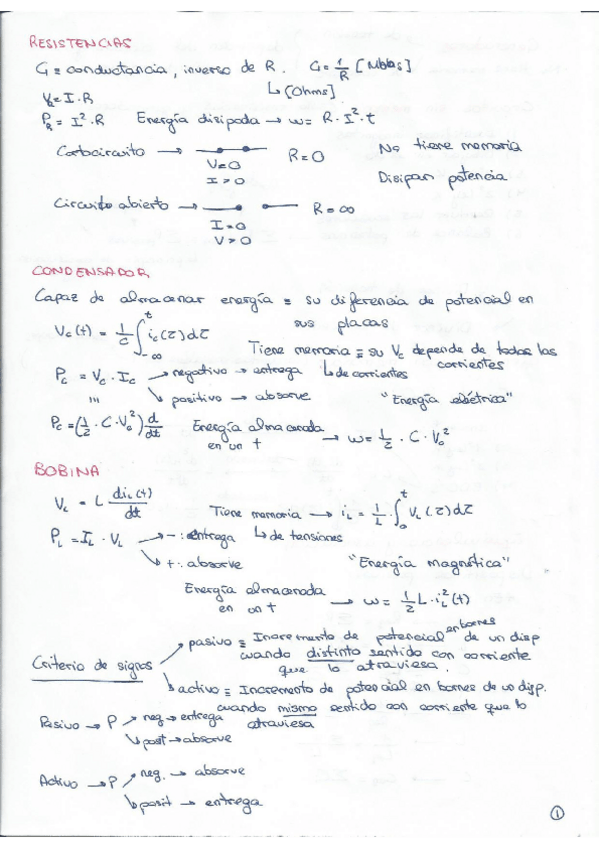 RESISTENCIAS
G ≡ conductancia, inverso de R. G = 1/R [Mhos]
↳ [Ohms]
V_R = I · R
P_R = I² · R Energía disipada → w = R · I² · t
Cortocircuito → V=0 I>0 R=0 No tiene memoria
Disipan potencia
Circuito abierto → I=0 V>0 R=∞
CONDENSADOR
Capaz de almacenar energía ≡ su diferencia de potencial en
sus placas
V_c(t) = 1/C ∫_{-∞}^{t} i_c(τ)dτ
Tiene memoria ≡ su V_c depende de todas las
corrientes
↳ de corrientes
P_c = V_c · I_c → negativo → entrega
↘ positivo → absorve "Energía eléctrica"
P_c = (1/2 · C · V_o²) d/dt Energía almacenada
en un t → w = 1/2 · C · V_o²
BOBINA
V_L = L di_L(t)/dt Tiene memoria → i_L = 1/L · ∫_0^t V_L(τ)dτ
↳ de tensiones
P_L = I_L · V_L → - : entrega
↘ + : absorve "Energía magnética"
Energía almacenada
en un t → w = 1/2 L · i_L²(t)
Criterio de signos
pasivo ≡ Incremento de potencial en bornes de un disp
cuando distinto sentido con corriente
que lo atraviesa.
activo ≡ Incremento de potencial en bornes de un disp.
cuando mismo sentido con corriente que lo
atraviesa
Pasivo → P ↗ neg → entrega
↘ posit → absorve
Activo → P ↗ neg. → absorve
↘ posit → entrega
1